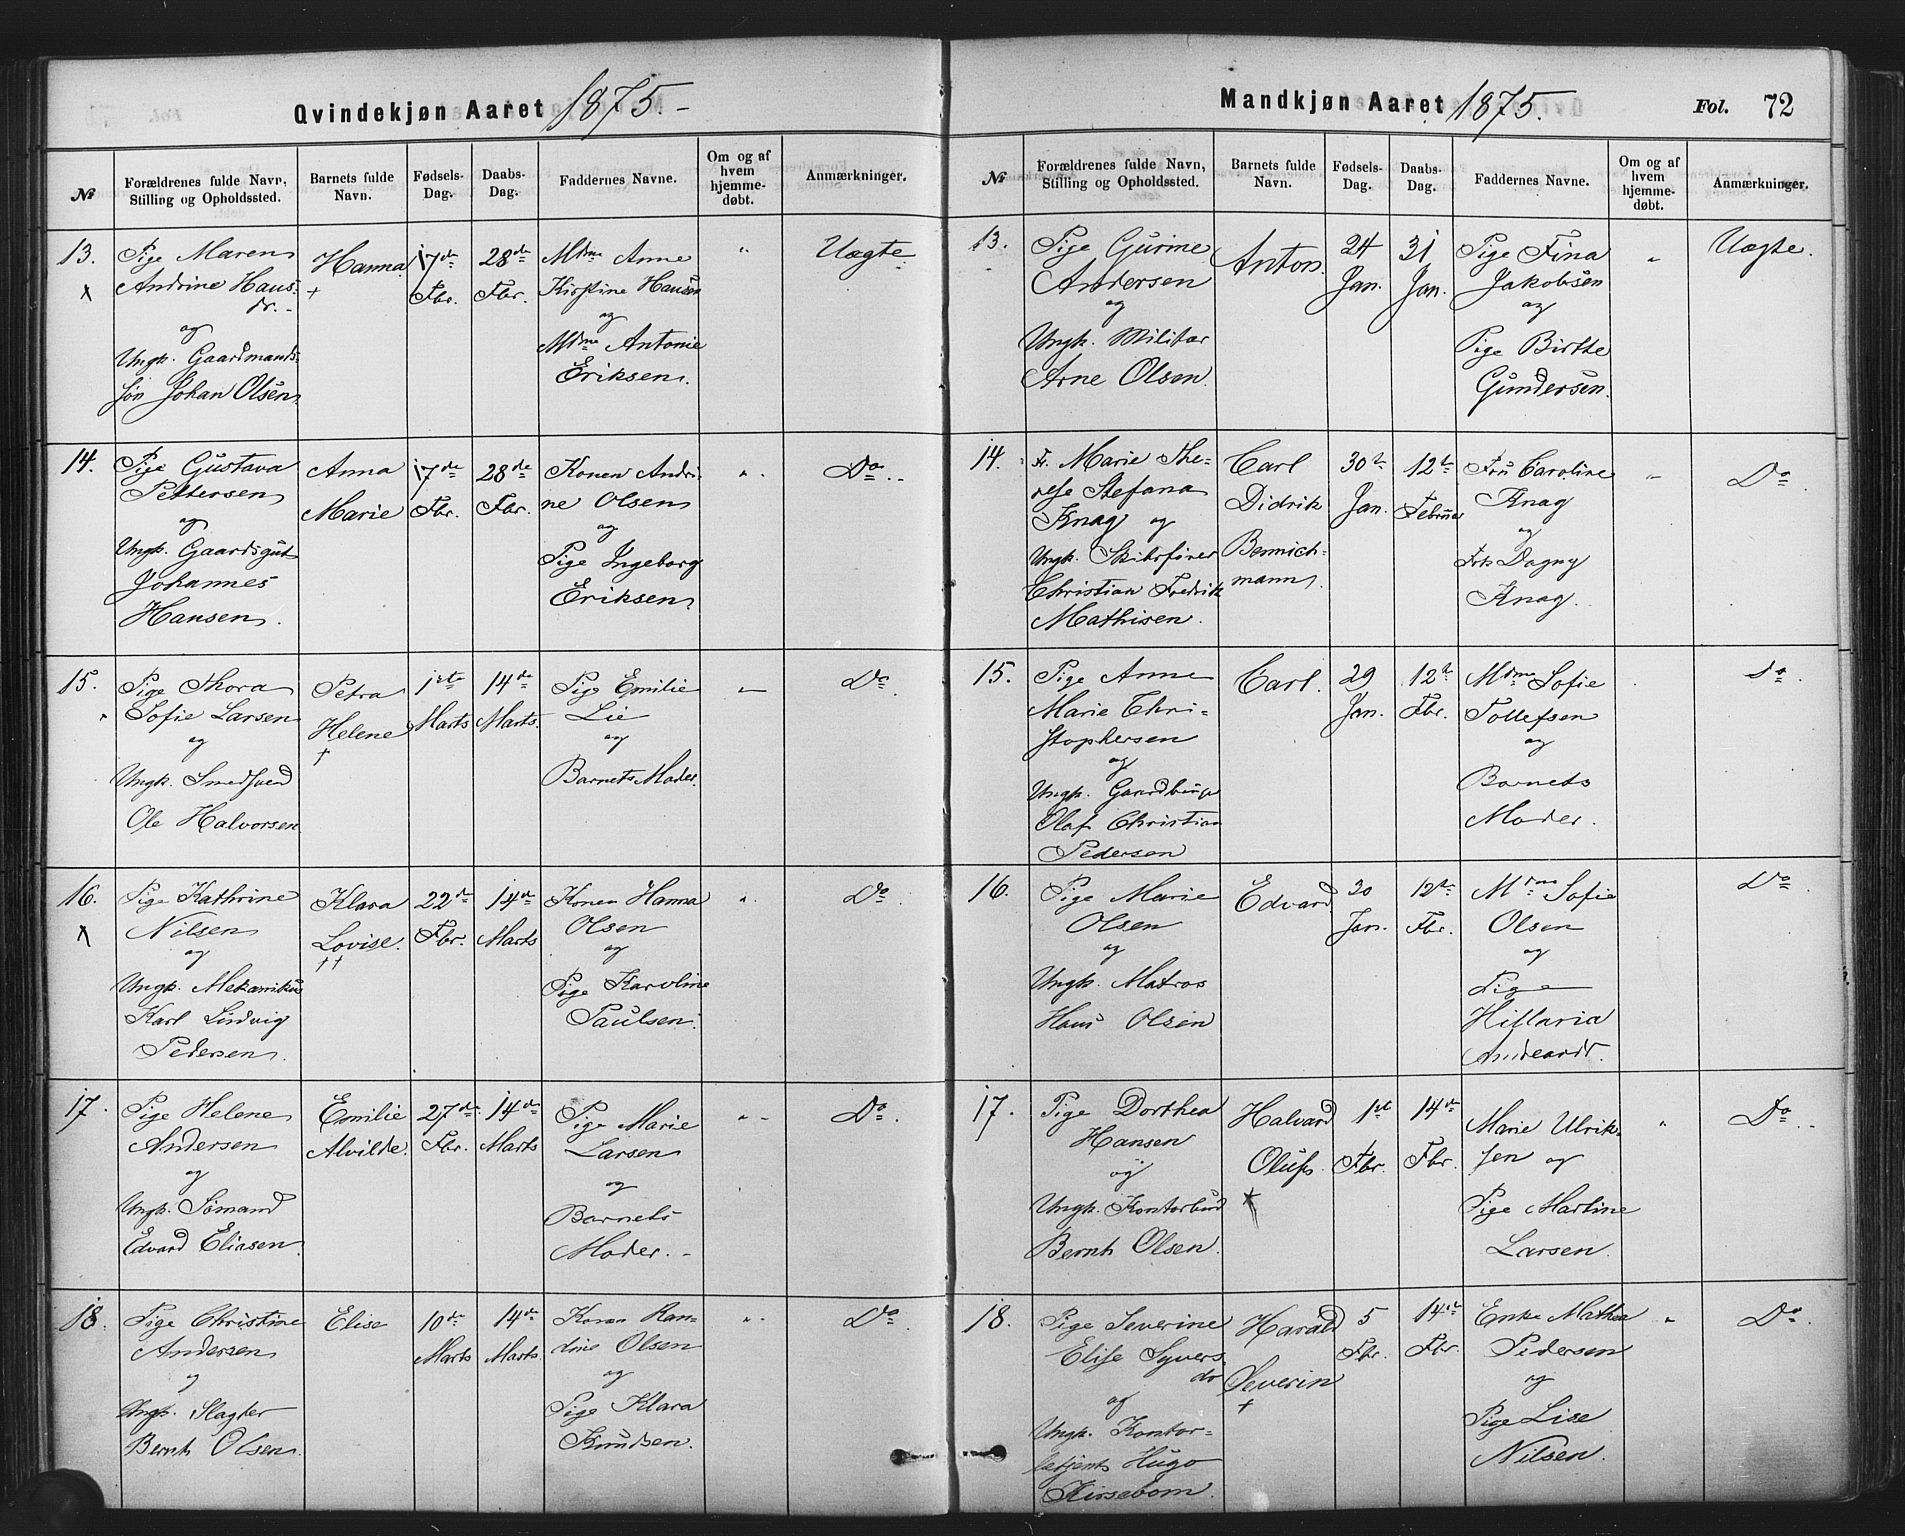 Qvindekjøn Aaret 1875.
№
Forældrenes fulde Navn,
Stilling og Opholdssted.
Barnets fulde
Navn.
Fødsels-
Dag.
Daabs-
Dag.
Faddernes Navne.
Om og af
hvem
hjemme-
døbt.
Anmærkninger.
13.
Pige Maren
Andrine Hans-
dr.
og
Ungk. Gaardmands-
søn Johan Olsen
Hanna
17de
Fbr.
28de
Fbr.
Mdme Anne
Kirstine Hansen
og
Mdme Antonie
Eriksen.
"
Uægte
14.
Pige Gustava
Pettersen
og
Ungk. Gaardsgut
Johannes
Hansen.
Anna
Marie
17de
Fbr.
28de
Fbr.
Konen Andri-
ne Olsen
og
Pige Ingeborg
Eriksen
"
Do
15.
Pige Thora
Sofie Larsen
og
Ungk. Smedsvend
Ole Halvorsen
Petra
Helene
1ste
Marts
14de
Marts.
Pige Emilie
Lie
og
Barnets Moder.
Do
16.
Pige Kathrine
Nilsen
og
Ungk. Mekanikus
Karl Ludvig
Pedersen.
Klara
Lovise.
22de
Fbr.
14de
Marts
Konen Hanna
Olsen
og
Pige Karoline
Paulsen.
"
Do
17.
Pige Helene
Andersen
og
Ungk. Sømand
Edvard Eliasen
Emilie
Alvilde.
27de
Fbr.
14de
Marts
Pige Marie
Larsen
og
Barnets
Moder.
"
Do
18.
Pige Christine
Andersen
og
Ungk. Slagter
Bernh Olsen.
Elise
10de
Marts
14de
Marts.
Konen Ran-
dine Olsen
og
Pige Klara
Knudsen.
"
Do
Mandkjøn Aaret 1875.
Fol. 72
№
Forældrenes fulde Navn,
Stilling og Opholdssted.
Barnets fulde
Navn.
Fødsels-
Dag.
Daabs-
Dag.
Faddernes Navne.
Om og af
hvem
hjemme-
døbt.
Anmærkninger.
13.
Pige Gurine
Andersen
og
Ungk. Militær
Arne Olsen.
Anton.
24
Jan.
31
Jan.
Pige Fina
Jakobsen
og
Pige Birthe
Gundersen.
"
Uægte.
14.
Fr. Marie The-
rese Stefana
Knag og
Ungk. Skibsfører
Christian Fredrik
Mathisen.
Carl
Didrik
Bennich-
mann.
30te
Jan.
12te
Februar
Fru Caroline
Knag
og
Frk Dagny
Knag.
"
Do
15.
Pige Anne
Marie Chri-
stophersen
og
Ungk.
Olaf Christian
Pedersen
Carl.
29
Jan.
12te
Fbr.
Mdme Sofie
Tollefsen
og
Barnets
Moder.
Do
16.
Pige Marie
Olsen
og
Ungk. Matros
Hans Olsen
Edvard
30
Jan.
12te
Fbr.
Mdme Sofie
Olsen
og
Pige
Hillaria
Do
17.
Pige Dorthea
Hansen
og
Ungk. Kontorbud
Bernh Olsen.
Halvard
Oluf.
1st
Fbr.
14de
Fbr.
Marie Ulrik-
sen og
Pige Martine
Larsen.
"
Do
18.
Pige Severine
Elise Syvers-
dr
og
Ungk. Kontor-
betjent Hugo
Kirsebom.
Harald
Severin
5
Fbr.
14de
Fbr.
Enke Mathea
Pedersen
og
Pige Lise
Nilsen.
"
Do